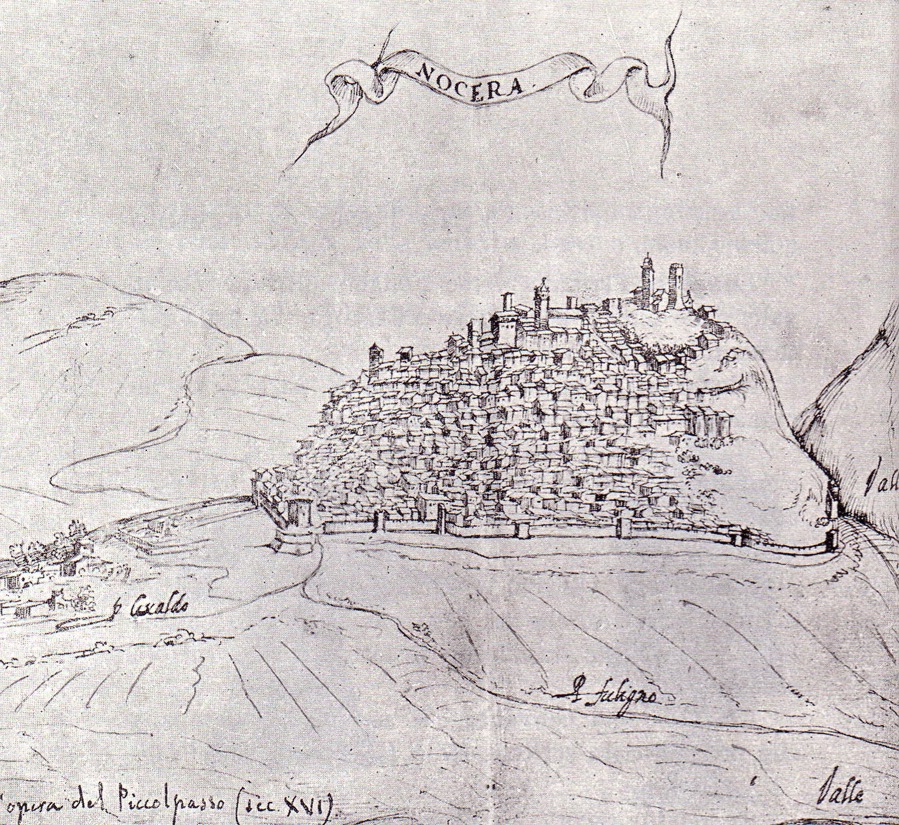 NOCERA.
Vall
p Gualdo
P fuligno
Valle
opera del Piccolpasso (sec XVI)